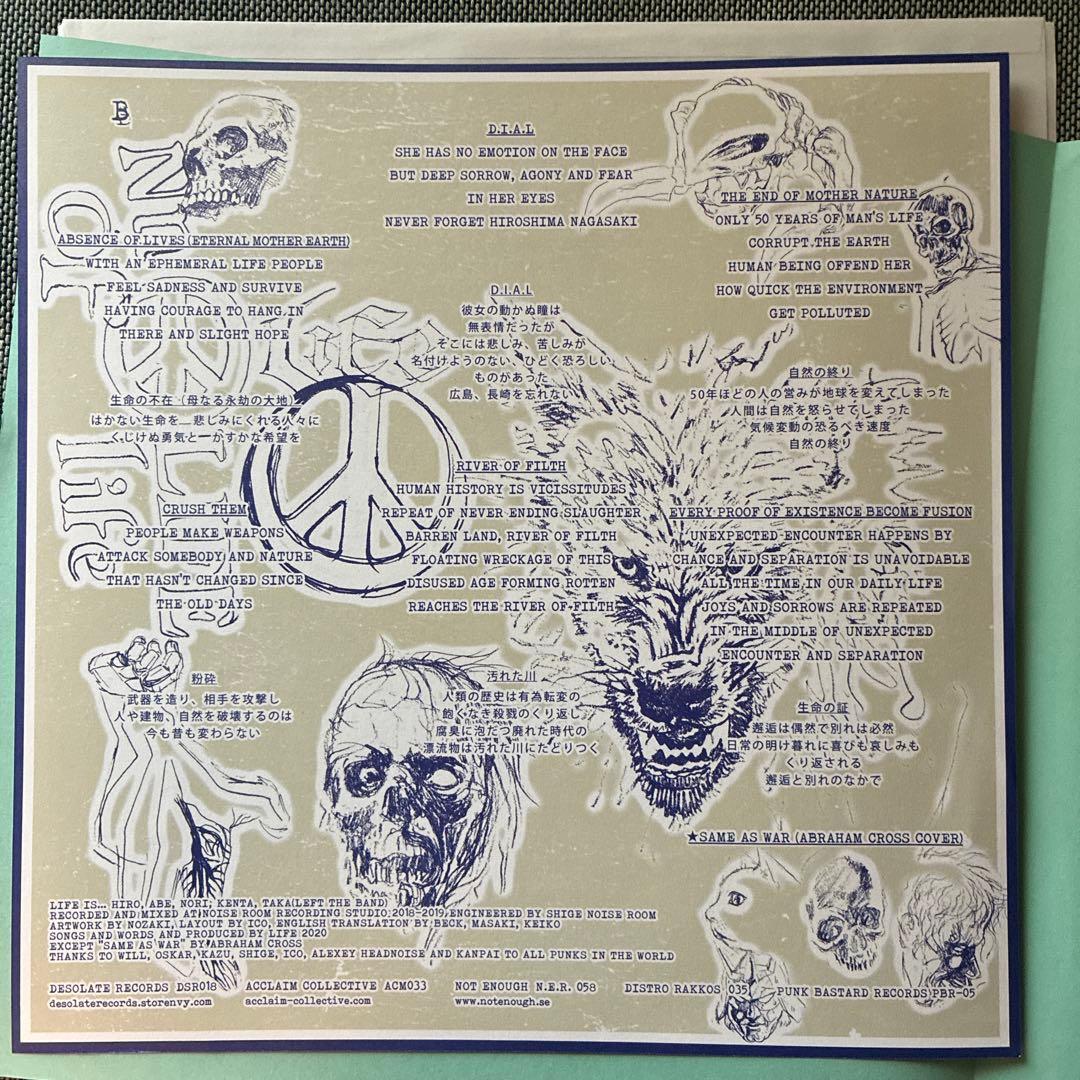 D.I.A.L
SHE HAS NO EMOTION ON THE FACE
BUT DEEP SORROW, AGONY AND FEAR
IN HER EYES
NEVER FORGET HIROSHIMA NAGASAKI
THE END OF MOTHER NATURE
ONLY 50 YEARS OF MAN'S LIFE
CORRUPT THE EARTH
HUMAN BEING OFFEND HER
HOW QUICK THE ENVIRONMENT
GET POLLUTED
ABSENCE OF LIVES (ETERNAL MOTHER EARTH)
WITH AN EPHEMERAL LIFE PEOPLE
FEEL SADNESS AND SURVIVE
HAVING COURAGE TO HANG IN
THERE AND SLIGHT HOPE
D.I.A.L
彼女の動かぬ瞳は
無表情だったが
そこには悲しみ、苦しみが
名付けようのない、ひどく恐ろしい
ものがあった
広島、長崎を忘れない
Life
自然の終り
50年ほどの人の営みが地球を変えてしまった
人間は自然を怒らせてしまった
気候変動の恐るべき速度
自然の終り
生命の不在（母なる永劫の大地）
はかない生命を__悲しみにくれる人々に
くじけぬ勇気と一かすかな希望を
RIVER OF FILTH
HUMAN HISTORY IS VICISSITUDES
REPEAT OF NEVER ENDING SLAUGHTER
BARREN LAND, RIVER OF FILTH
FLOATING WRECKAGE OF THIS
DISUSED AGE FORMING ROTTEN
REACHES THE RIVER OF FILTH
EVERY PROOF OF EXISTENCE BECOME FUSION
UNEXPECTED ENCOUNTER HAPPENS BY
CHANCE AND SEPARATION IS UNAVOIDABLE
ALL THE TIME IN OUR DAILY LIFE
JOYS AND SORROWS ARE REPEATED
IN THE MIDDLE OF UNEXPECTED
ENCOUNTER AND SEPARATION
CRUSH THEM
PEOPLE MAKE WEAPONS
ATTACK SOMEBODY AND NATURE
THAT HASN'T CHANGED SINCE
THE OLD DAYS
Life
粉砕
武器を造り、相手を攻撃し
人や建物、自然を破壊するのは
今も昔も変わらない
汚れた川
人類の歴史は有為転変の
飽くなき殺戮のくり返し
腐臭に泡だつ廃れた時代の
漂流物は汚れた川にたどりつく
生命の証
邂逅は偶然で別れは必然
日常の明け暮れに喜びも哀しみも
くり返される
邂逅と別れのなかで
★SAME AS WAR (ABRAHAM CROSS COVER)
LIFE IS... HIRO, ABE, NORI, KENTA, TAKA(LEFT THE BAND)
RECORDED AND MIXED AT NOISE ROOM RECORDING STUDIO 2018-2019,ENGINEERED BY SHIGE NOISE ROOM
ARTWORK BY NOZAKI, LAYOUT BY ICO, ENGLISH TRANSLATION BY BECK, MASAKI, KEIKO
SONGS AND WORDS AND PRODUCED BY LIFE 2020
EXCEPT "SAME AS WAR" BY ABRAHAM CROSS
THANKS TO WILL, OSKAR, KAZU, SHIGE, ICO, ALEXEY HEADNOISE AND KANPAI TO ALL PUNKS IN THE WORLD
DESOLATE RECORDS DSR018 ACCLAIM COLLECTIVE ACM033 NOT ENOUGH N.E.R. 058 DISTRO RAKKOS 035 PUNK BASTARD RECORDS PBR-05
desolaterecords.storenvy.com acclaim-collective.com www.notenough.se